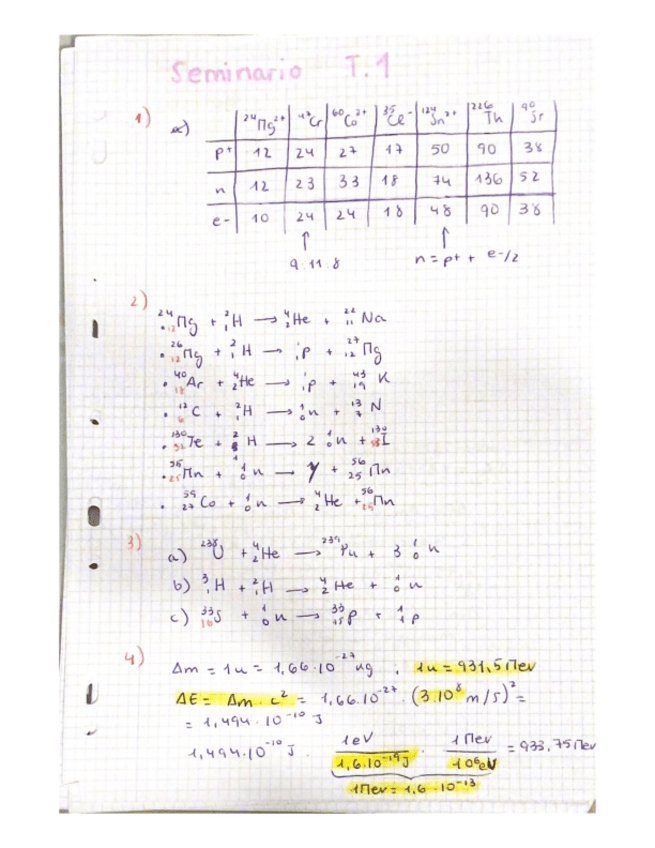 Seminario T.1
1) a) ²⁴Mg²⁺ ⁴⁷Cr ⁶⁰Co³⁺ ³⁵Cl⁻ ¹²⁴Sn²⁺ ²²⁶Th ⁹⁰Sr
p+ 12 24 27 17 50 90 38
n 12 23 33 18 74 136 52
e- 10 24 24 18 48 90 38
9.11.8 n = p+ + e-/2
2)
· ²⁴₁₂Mg + ²₁H → ⁴₂He + ²²₁₁Na
· ²⁶₁₂Mg + ²₁H → ¹₁p + ²⁷₁₂Mg
· ⁴⁰₁₈Ar + ⁴₂He → ¹₁p + ⁴³₁₉K
· ¹²₆C + ²₁H → ¹₀n + ¹³₇N
· ¹³⁰₅₂Te + ²₁H → 2 ¹₀n + ¹³⁰₅₃I
· ⁵⁵₂₅Mn + ¹₀n → γ + ⁵⁶₂₅Mn
· ⁵⁹₂₇Co + ¹₀n → ⁴₂He + ⁵⁶₂₅Mn
3) a) ²³⁸U + ⁴₂He → ²³⁹Pu + 3 ¹₀n
b) ³₁H + ²₁H → ⁴₂He + ¹₀n
c) ³³₁₆S + ¹₀n → ³³₁₅P + ¹₁p
4) Δm = 1u = 1,66·10⁻²⁷ kg , 1u = 931,5 Mev
ΔE = Δm · c² = 1,66·10⁻²⁷ · (3·10⁸ m/s)² =
= 1,494 · 10⁻¹⁰ J
1,494·10⁻¹⁰ J · 1eV / 1,6·10⁻¹⁹J · 1Mev / 10⁶eV = 933,75 Mev
1Mev = 1,6 · 10⁻¹³